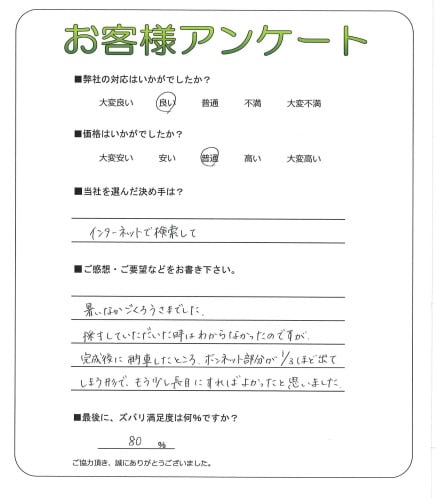 お客様アンケート
■弊社の対応はいかがでしたか？
大変良い 良い 普通 不満 大変不満
■価格はいかがでしたか？
大変安い 安い 普通 高い 大変高い
■当社を選んだ決め手は？
インターネットで検索して
■ご感想・ご要望などをお書き下さい。
暑いなかごくろうさまでした。
探寸していただいた時はわからなかったのですが、
完成後に納車したところ、ボンネット部分が1/3ほど出て
しまう形で、もう少し長目にすればよかったと思いました。
■最後に、ズバリ満足度は何％ですか？
80 ％
ご協力頂き、誠にありがとうございました。